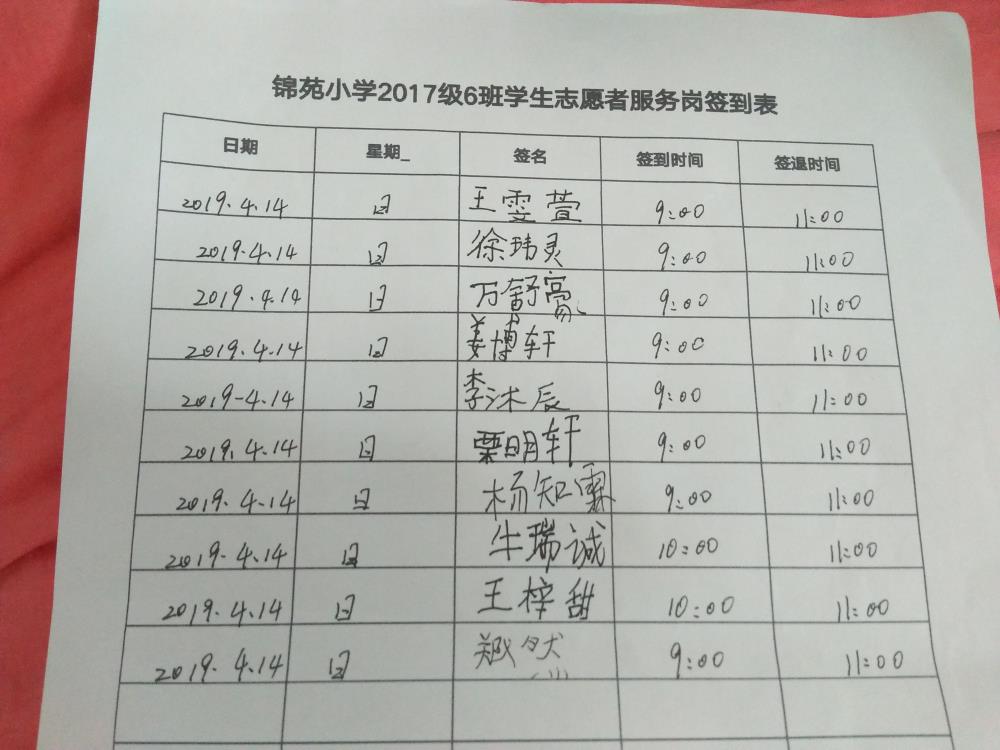 锦苑小学2017级6班学生志愿者服务岗签到表
日期 星期_ 签名 签到时间 签退时间
2019.4.14 日 王雯萱 9:00 11:00
2019.4.14 日 徐玮灵 9:00 11:00
2019.4.14 日 万舒 9:00 11:00
2019.4.14 日 姜博轩 9:00 11:00
2019-4.14 日 李沐辰 9:00 11:00
2019.4.14 日 栗明轩 9:00 11:00
2019.4.14 日 杨知霖 9:00 11:00
2019.4.14 日 牛瑞诚 10:00 11:00
2019.4.14 日 王梓甜 10:00 11:00
2019.4.14 日 郑 然 9:00 11:00